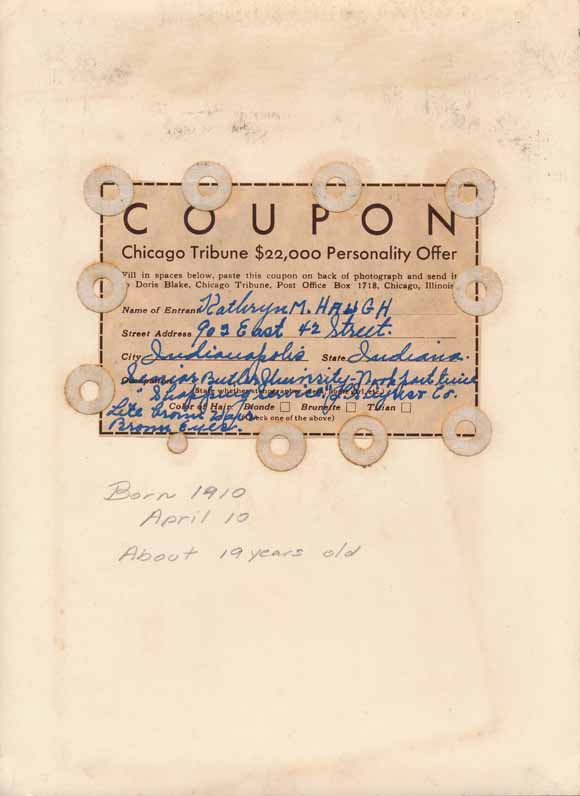 COUPON
Chicago Tribune $22,000 Personality Offer
Fill in spaces below, paste this coupon on back of photograph and send it
to Doris Blake, Chicago Tribune, Post Office Box 1718, Chicago, Illinois
Name of Entrant Kathryn M. HAUGH
Street Address 903 East 42 Street.
City Indianapolis State Indiana.
Senior Butler University - Work part time
(State whether stenographer,
"Shopping Service" L.S. Ayres & Co.
Color of Hair: Blonde Brunette Titian
Lite brown hair
(Check one of the above)
Brown Eyes.
Born 1910
April 10
About 19 years old